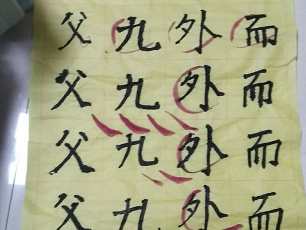 父九外而
父九外而
父九外而
父九外而